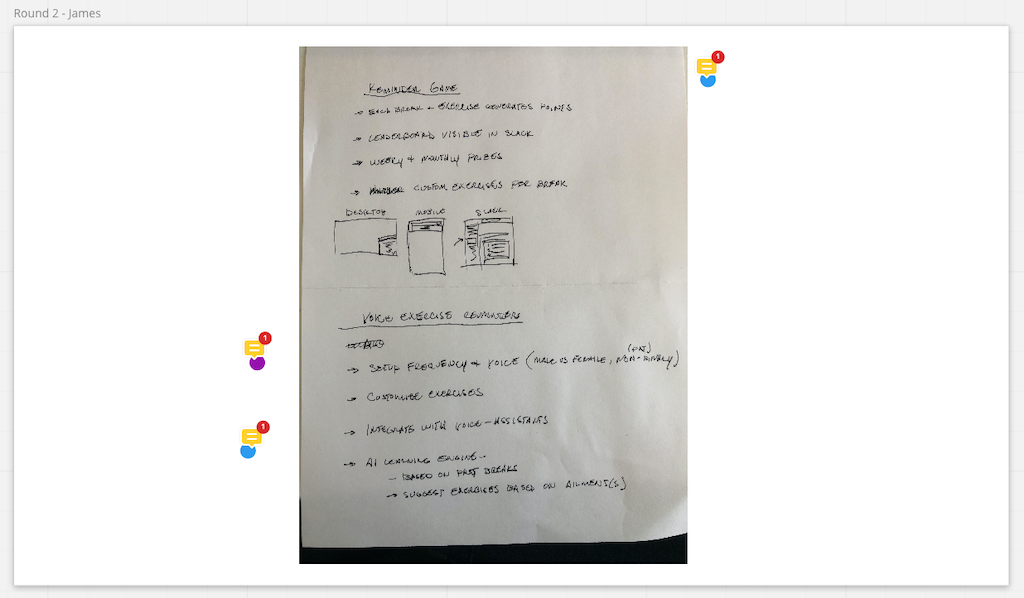 Round 2 - James
1
REMINDER GAME
→ EACH BREAK + EXERCISE GENERATES POINTS
→ LEADERBOARD VISIBLE IN SLACK
→ WEEKLY + MONTHLY PRIZES
→ CUSTOM EXERCISES PER BREAK
DESKTOP MOBILE SLACK
VOICE EXERCISE REMINDERS
1
→ SETUP FREQUENCY + VOICE (MALE VS FEMALE, NON-BINARY)
→ CUSTOMISE EXERCISES
1
→ INTEGRATE WITH VOICE-ASSISTANTS
→ AI LEARNING ENGINE -
- BASED ON PAST BREAKS
→ SUGGEST EXERCISES BASED ON AILMENT(S)